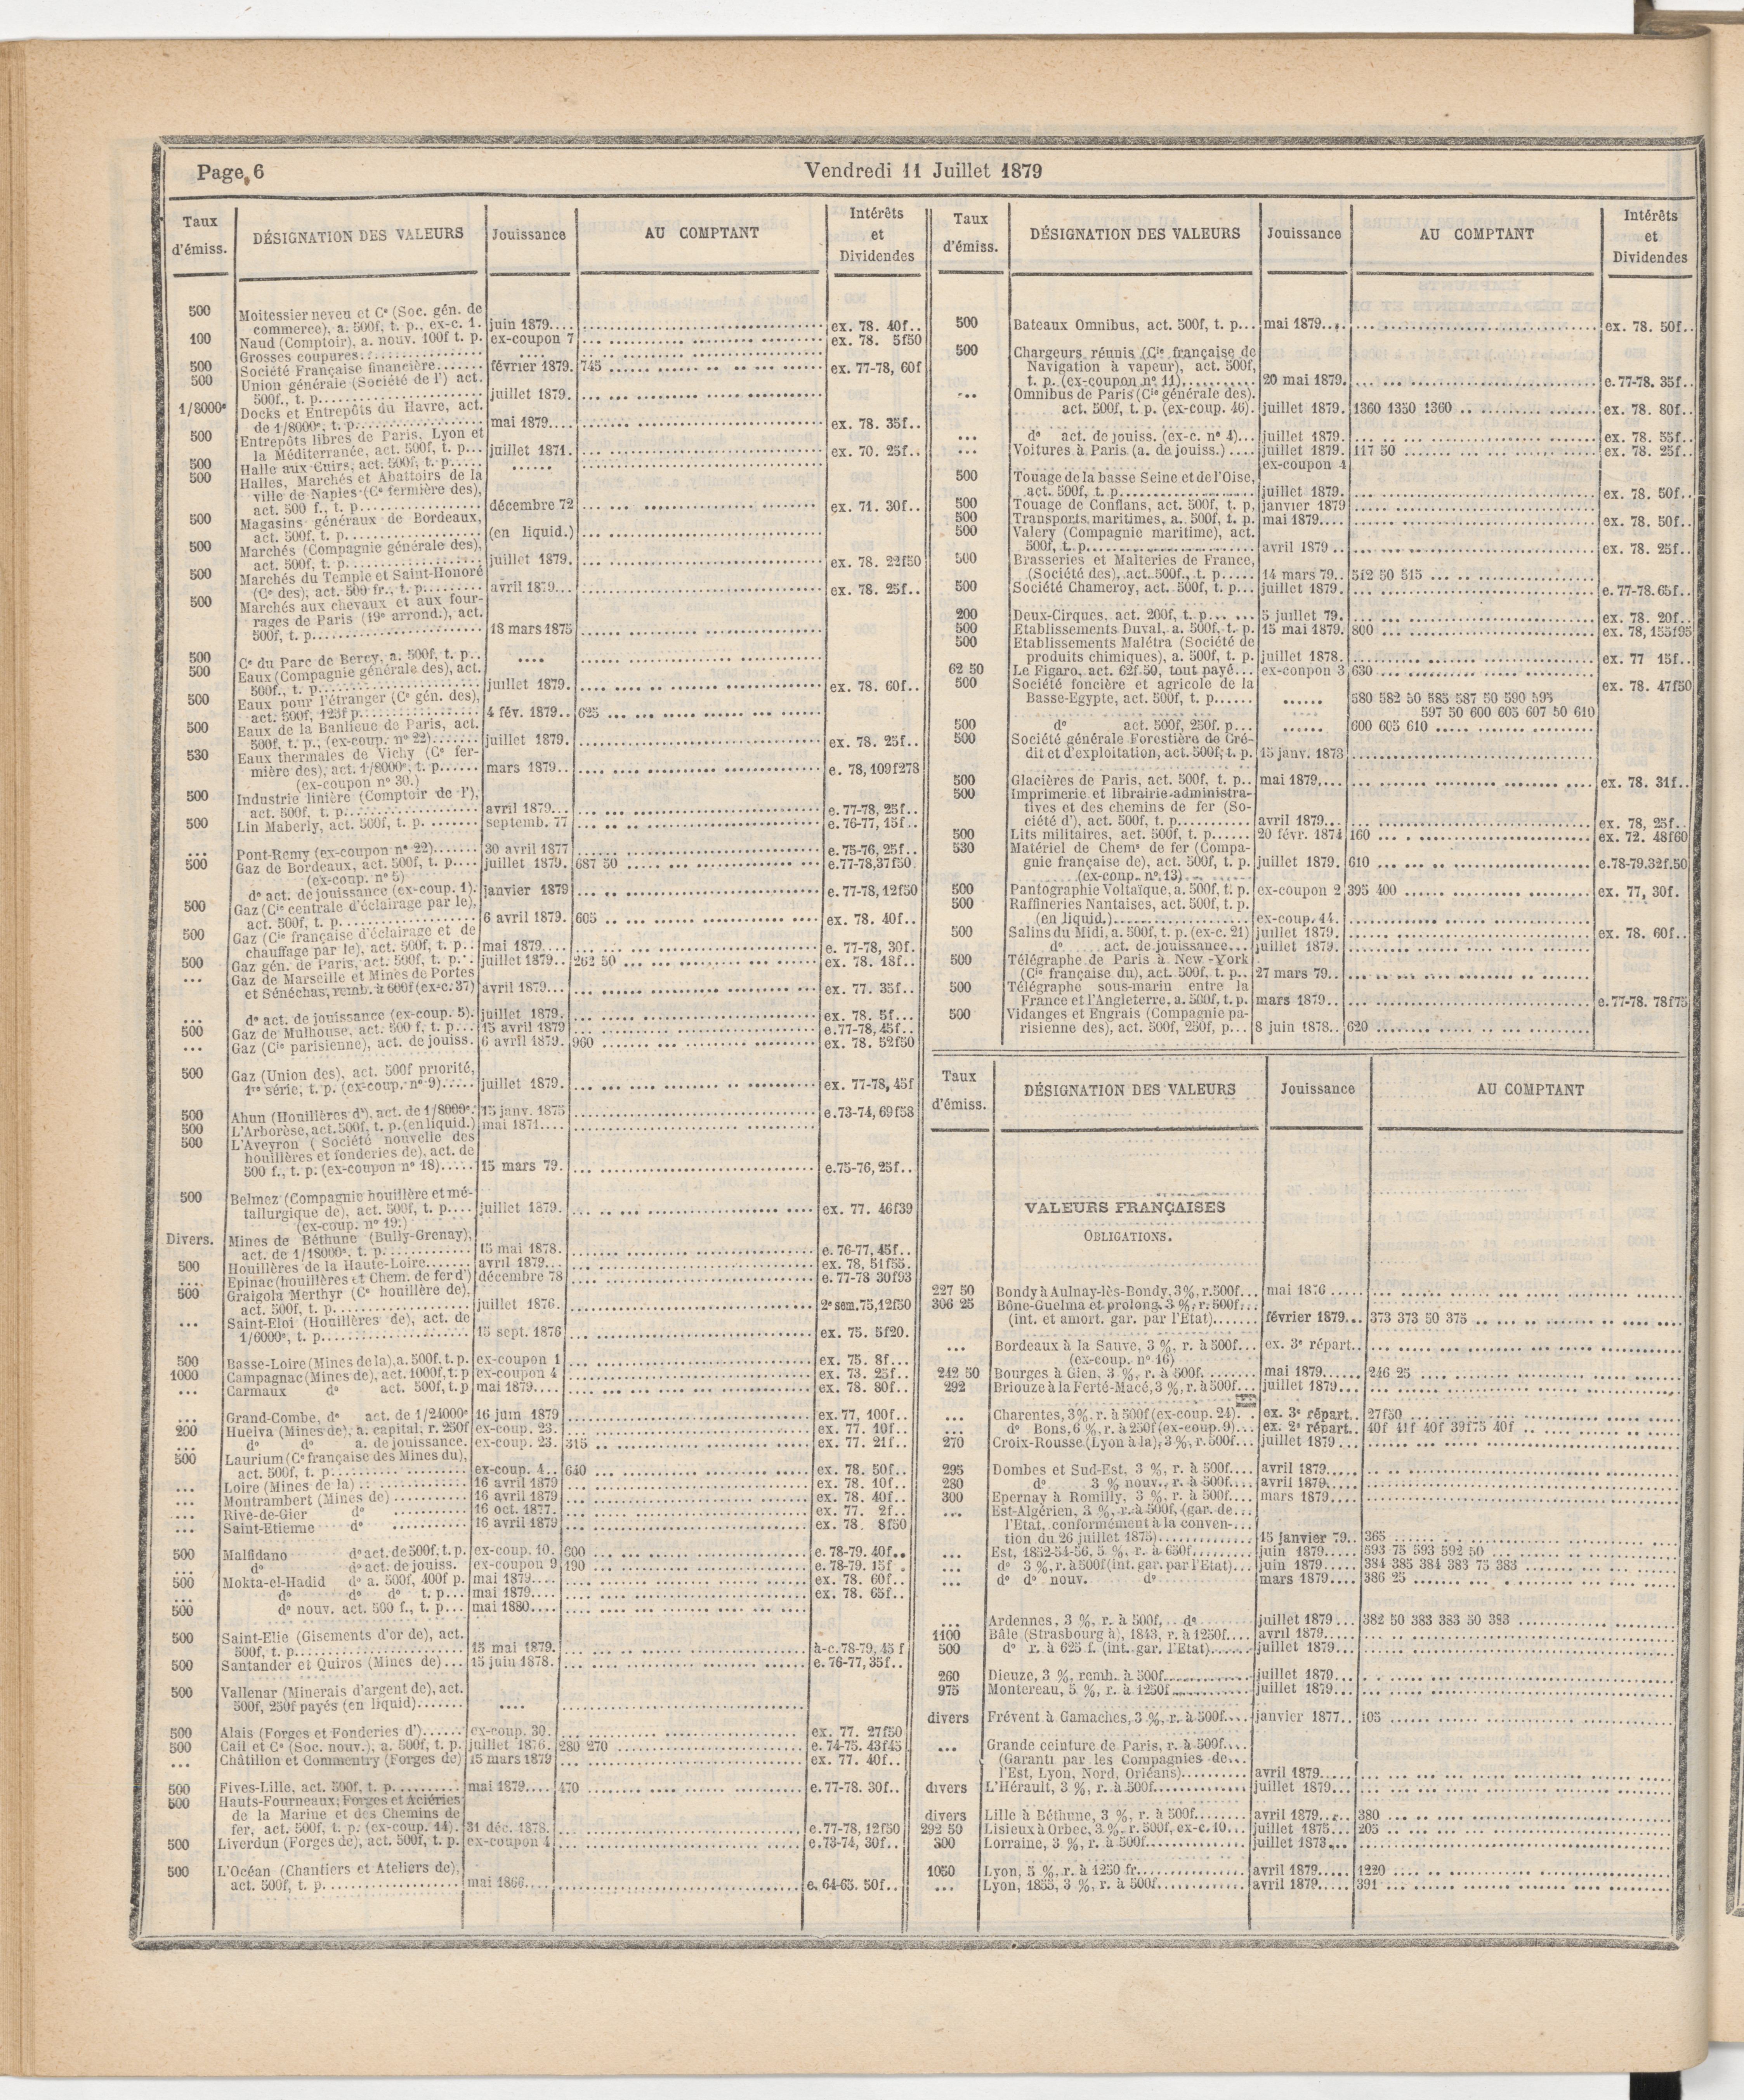 Page 6
Vendredi 11 Juillet 1879
Taux d'émiss. DÉSIGNATION DES VALEURS Jouissance AU COMPTANT Intérêts et Dividendes
500 Moitessier neveu et Ce (Soc. gén. de
commerce), a. 500f, t. p., ex-c. 1. juin 1879.... ex. 78. 40f..
100 Naud (Comptoir), a. nouv. 100f t. p. ex-coupon 7 ex. 78. 5f50
Grosses coupures
500 Société Française financière....... février 1879. 745 ex. 77-78, 60f
500 Union générale (Société de l') act.
500f., t. p. juillet 1879.
1/8000e Docks et Entrepôts du Havre, act.
de 1/8000e, t. p. mai 1879.... ex. 78. 35f..
500 Entrepôts libres de Paris, Lyon et
la Méditerranée, act. 500f, t. p... juillet 1871. ex. 70. 25f..
500 Halle aux Cuirs, act. 500f, t. p.....
500 Halles, Marchés et Abattoirs de la
ville de Naples (Ce fermière des),
act. 500 f., t. p. décembre 72 ex. 71. 30f..
500 Magasins généraux de Bordeaux,
act. 500f, t. p. (en liquid.)
500 Marchés (Compagnie générale des),
act. 500f, t. p. juillet 1879. ex. 78. 22f50
500 Marchés du Temple et Saint-Honoré
(Ce des), act. 500 fr., t. p. avril 1879... ex. 78. 25f..
500 Marchés aux chevaux et aux four-
rages de Paris (19e arrond.), act.
500f, t. p. 18 mars 1875
500 Ce du Parc de Bercy, a. 500f, t. p..
500 Eaux (Compagnie générale des), act.
500f., t. p. juillet 1879. ex. 78. 60f..
500 Eaux pour l'étranger (Ce gén. des),
act. 500f, 125f p. 4 fév. 1879.. 625
500 Eaux de la Banlieue de Paris, act.
500f, t. p., (ex-coup. no 22) juillet 1879. ex. 78. 25f..
530 Eaux thermales de Vichy (Ce fer-
mière des), act. 1/8000e, t. p...... mars 1879.. e. 78, 109f278
(ex-coupon no 30.)
500 Industrie linière (Comptoir de l'),
act. 500f, t. p. avril 1879... e. 77-78, 25f..
500 Lin Maberly, act. 500f, t. p. septemb. 77 e. 76-77, 15f..
... Pont-Remy (ex-coupon no 22) 30 avril 1877 e. 75-76, 25f..
500 Gaz de Bordeaux, act. 500f, t. p.... juillet 1879. 687 50 e.77-78,37f50
(ex-coup. no 5)
do act. de jouissance (ex-coup. 1). janvier 1879 e. 77-78, 12f50
500 Gaz (Cie centrale d'éclairage par le),
act. 500f, t. p. 6 avril 1879. 605 ex. 78. 40f..
500 Gaz (Cie française d'éclairage et de
chauffage par le), act. 500f, t. p.. mai 1879.... e. 77-78, 30f.
500 Gaz gén. de Paris, act. 500f, t. p.. juillet 1879.. 262 50 ex. 78. 18f..
... Gaz de Marseille et Mines de Portes
et Sénéchas, remb. à 600f (ex-c. 37) avril 1879... ex. 77. 35f..
... do act. de jouissance (ex-coup. 5). juillet 1879. ex. 78. 5f...
500 Gaz de Mulhouse, act. 500 f, t. p... 15 avril 1879 e.77-78, 45f..
... Gaz (Cie parisienne), act. de jouiss. 6 avril 1879. 960 ex. 78. 52f50
500 Gaz (Union des), act. 500f priorité,
1re série, t. p. (ex-coup. no 9) juillet 1879. ex. 77-78, 45f
500 Ahun (Houillères d'), act. de 1/8000e. 15 janv. 1875 e.73-74, 69f58
500 L'Arborèse, act. 500f, t. p. (en liquid.) mai 1871....
500 L'Aveyron (Société nouvelle des
houillères et fonderies de), act. de
500 f., t. p. (ex-coupon no 18) 15 mars 79. e.75-76, 25f..
500 Belmez (Compagnie houillère et mé-
tallurgique de), act. 500f, t. p.... juillet 1879. ex. 77. 46f39
(ex-coup. no 19.)
Divers. Mines de Béthune (Bully-Grenay),
act. de 1/18000e, t. p. 15 mai 1878. e. 76-77, 45f..
500 Houillères de la Haute-Loire....... avril 1879... ex. 78, 51f55.
.... Epinac (houillères et Chem. de fer d') décembre 78 e. 77-78 30f93
500 Graigola Merthyr (Ce houillère de),
act. 500f, t. p. juillet 1876. 2e sem. 75, 12f50
... Saint-Eloi (Houillères de), act. de
1/6000e, t. p. 15 sept. 1876 ex. 75. 5f20.
500 Basse-Loire (Mines de la), a. 500f, t. p. ex-coupon 1 ex. 75. 8f...
1000 Campagnac (Mines de), act. 1000f, t. p ex-coupon 4 ex. 73. 25f..
... Carmaux do act. 500f, t. p mai 1879.... ex. 78. 80f..
... Grand-Combe, do act. de 1/24000e 16 juin 1879 ex. 77, 100f..
200 Huelva (Mines de), a. capital, r. 250f ex-coup. 23. ex. 77. 10f..
... do do a. de jouissance. ex-coup. 23. 315 ex. 77. 21f..
500 Laurium (Ce française des Mines du),
act. 500f, t. p. ex-coup. 4.. 640 ex. 78. 50f..
... Loire (Mines de la) 16 avril 1879 ex. 78. 10f..
... Montrambert (Mines de) 16 avril 1879 ex. 78. 40f..
... Rive-de-Gier do 16 oct. 1877. ex. 77. 2f..
... Saint-Etienne do 16 avril 1879 ex. 78. 8f50
500 Malfidano do act. de 500f, t. p. ex-coup. 10. 600 e. 78-79. 40f..
... do do act. de jouiss. ex-coupon 9 190 e. 78-79. 15f .
500 Mokta-el-Hadid do a. 500f, 400f p. mai 1879.... ex. 78. 60f..
... do do do t. p... mai 1879.... ex. 78. 65f..
500 do nouv. act. 500 f., t. p... mai 1880....
500 Saint-Elie (Gisements d'or de), act.
500f, t. p. 15 mai 1879. à-c. 78-79, 45 f
500 Santander et Quiros (Mines de)... 15 juin 1878. e. 76-77, 35f..
500 Vallenar (Minerais d'argent de), act.
500f, 250f payés (en liquid).......
500 Alais (Forges et Fonderies d')...... ex-coup. 30. ex. 77. 27f50
500 Cail et Ce (Soc. nouv.), a. 500f, t. p. juillet 1876. 280 270 e. 74-75. 43f45
... Châtillon et Commentry (Forges de) 15 mars 1879 ex. 77. 40f..
500 Fives-Lille, act. 500f, t. p. mai 1879.... 470 e. 77-78. 30f..
500 Hauts-Fourneaux, Forges et Aciéries
de la Marine et des Chemins de
fer, act. 500f, t. p. (ex-coup. 14). 31 déc. 1878. e. 77-78, 12f50
500 Liverdun (Forges de), act. 500f, t. p. ex-coupon 4 e. 73-74, 30f..
500 L'Océan (Chantiers et Ateliers de),
act. 500f, t. p. mai 1866.... e. 64-65. 50f..
Taux d'émiss. DÉSIGNATION DES VALEURS Jouissance AU COMPTANT Intérêts et Dividendes
500 Bateaux Omnibus, act. 500f, t. p... mai 1879.... ex. 78. 50f..
500 Chargeurs réunis (Cie française de
Navigation à vapeur), act. 500f,
t. p. (ex-coupon no 11) 20 mai 1879. e. 77-78. 35f..
... Omnibus de Paris (Cie générale des).
act. 500f, t. p. (ex-coup. 46). juillet 1879. 1360 1350 1360 ex. 78. 80f..
... do act. de jouiss. (ex-c. no 4)... juillet 1879. ex. 78. 55f..
... Voitures à Paris (a. de jouiss.).... juillet 1879. 117 50 ex. 78. 25f..
ex-coupon 4
500 Touage de la basse Seine et de l'Oise,
act. 500f, t. p. juillet 1879. ex. 78. 50f..
500 Touage de Conflans, act. 500f, t. p, janvier 1879
500 Transports maritimes, a. 500f, t. p. mai 1879.... ex. 78. 50f..
500 Valery (Compagnie maritime), act.
500f, t. p. avril 1879 .. ex. 78. 25f..
500 Brasseries et Malteries de France,
(Société des), act. 500f., t. p..... 14 mars 79.. 512 50 515
500 Société Chameroy, act. 500f, t. p... juillet 1879. e. 77-78. 65f..
200 Deux-Cirques, act. 200f, t. p... ... 5 juillet 79. ex. 78. 20f..
500 Etablissements Duval, a. 500f, t. p. 15 mai 1879. 800 ex. 78, 155f95
500 Etablissements Malétra (Société de
produits chimiques), a. 500f, t. p. juillet 1878. ex. 77 15f..
62 50 Le Figaro, act. 62f.50, tout payé... ex-conpon 3 630 ex. 78. 47f50
500 Société foncière et agricole de la
Basse-Egypte, act. 500f, t. p...... 580 582 50 585 587 50 590 595
597 50 600 605 607 50 610
500 do act. 500f, 250f, p... 600 605 610
500 Société générale Forestière de Cré-
dit et d'exploitation, act. 500f, t. p. 15 janv. 1873
500 Glacières de Paris, act. 500f, t. p.. mai 1879,... ex. 78. 31f..
500 Imprimerie et librairie administra-
tives et des chemins de fer (So-
ciété d'), act. 500f, t. p. avril 1879... ex. 78, 25f..
500 Lits militaires, act. 500f, t. p...... 20 févr. 1874 160 ex. 72. 48f60
530 Matériel de Chems de fer (Compa-
gnie française de), act. 500f, t. p. juillet 1879. 610 e.78-79.32f.50
(ex-coup. no 13)
500 Pantographie Voltaïque, a. 500f, t. p. ex-coupon 2 395 400 ex. 77, 30f.
500 Raffineries Nantaises, act. 500f, t. p.
(en liquid.) ex-coup. 44.
500 Salins du Midi, a. 500f, t. p. (ex-c. 21) juillet 1879. ex. 78. 60f..
do act. de jouissance... juillet 1879.
500 Télégraphe de Paris à New-York
(Cie française du), act. 500f, t. p.. 27 mars 79..
500 Télégraphe sous-marin entre la
France et l'Angleterre, a. 500f, t. p. mars 1879.. e. 77-78. 78f75
500 Vidanges et Engrais (Compagnie pa-
risienne des), act. 500f, 250f, p... 8 juin 1878.. 620
Taux d'émiss. DÉSIGNATION DES VALEURS Jouissance AU COMPTANT
VALEURS FRANÇAISES
OBLIGATIONS.
227 50 Bondy à Aulnay-lès-Bondy, 3%, r. 500f... mai 1876
306 25 Bône-Guelma et prolong. 3 %, r. 500f...
(int. et amort. gar. par l'Etat)....... février 1879... 373 373 50 375
... Bordeaux à la Sauve, 3 %, r. à 500f... ex. 3e répart..
(ex-coup. no 16)
242 50 Bourges à Gien, 3 %, r. à 500f. mai 1879..... 246 25
292 Briouze à la Ferté-Macé, 3 %, r. à 500f... juillet 1879...
... Charentes, 3%, r. à 500f (ex-coup. 24). . ex. 3e répart.. 27f50
... do Bons, 6 %, r. à 250f (ex-coup. 9)... ex. 2e répart.. 40f 41f 40f 39f75 40f
270 Croix-Rousse (Lyon à la), 3 %, r. 500f... juillet 1879 ...
295 Dombes et Sud-Est, 3 %, r. à 500f.... avril 1879.....
280 do 3 % nouv., r. à 500f.... avril 1879.....
300 Epernay à Romilly, 3 %, r. à 500f.... mars 1879....
... Est-Algérien, 3 %, r. à 500f, (gar. de...
l'Etat, conformément à la conven-...
tion du 26 juillet 1875) 15 janvier 79.. 365
... Est, 1852-54-56, 5 %, r. à 650f. juin 1879..... 593 75 593 592 50
... do 3 %, r. à 500f (int. gar. par l'Etat)... juin 1879..... 384 385 384 383 75 383
... do do nouv. do mars 1879.... 386 25
... Ardennes, 3 %, r. à 500f, do juillet 1879 ... 382 50 383 383 50 383
1100 Bâle (Strasbourg à), 1843, r. à 1250f.... avril 1879.....
500 do r. à 625 f. (int. gar. l'Etat) juillet 1879...
260 Dieuze, 3 %, remb. à 500f. juillet 1879...
975 Montereau, 5 %, r. à 1250f juillet 1879...
divers Frévent à Gamaches, 3 %, r. à 500f.... janvier 1877.. 105
... Grande ceinture de Paris, r. à 500f...
(Garanti par les Compagnies de...
l'Est, Lyon, Nord, Orléans) avril 1879.....
divers L'Hérault, 3 %, r. à 500f. juillet 1879...
divers Lille à Béthune, 3 %, r. à 500f........ avril 1879..... 380
292 50 Lisieux à Orbec, 3 %, r. 500f, ex-c. 10... juillet 1875... 205
300 Lorraine, 3 %, r. à 500f. juillet 1873...
1050 Lyon, 5 %, r. à 1250 fr. avril 1879..... 1220
... Lyon, 1855, 3 %, r. à 500f. avril 1879..... 391